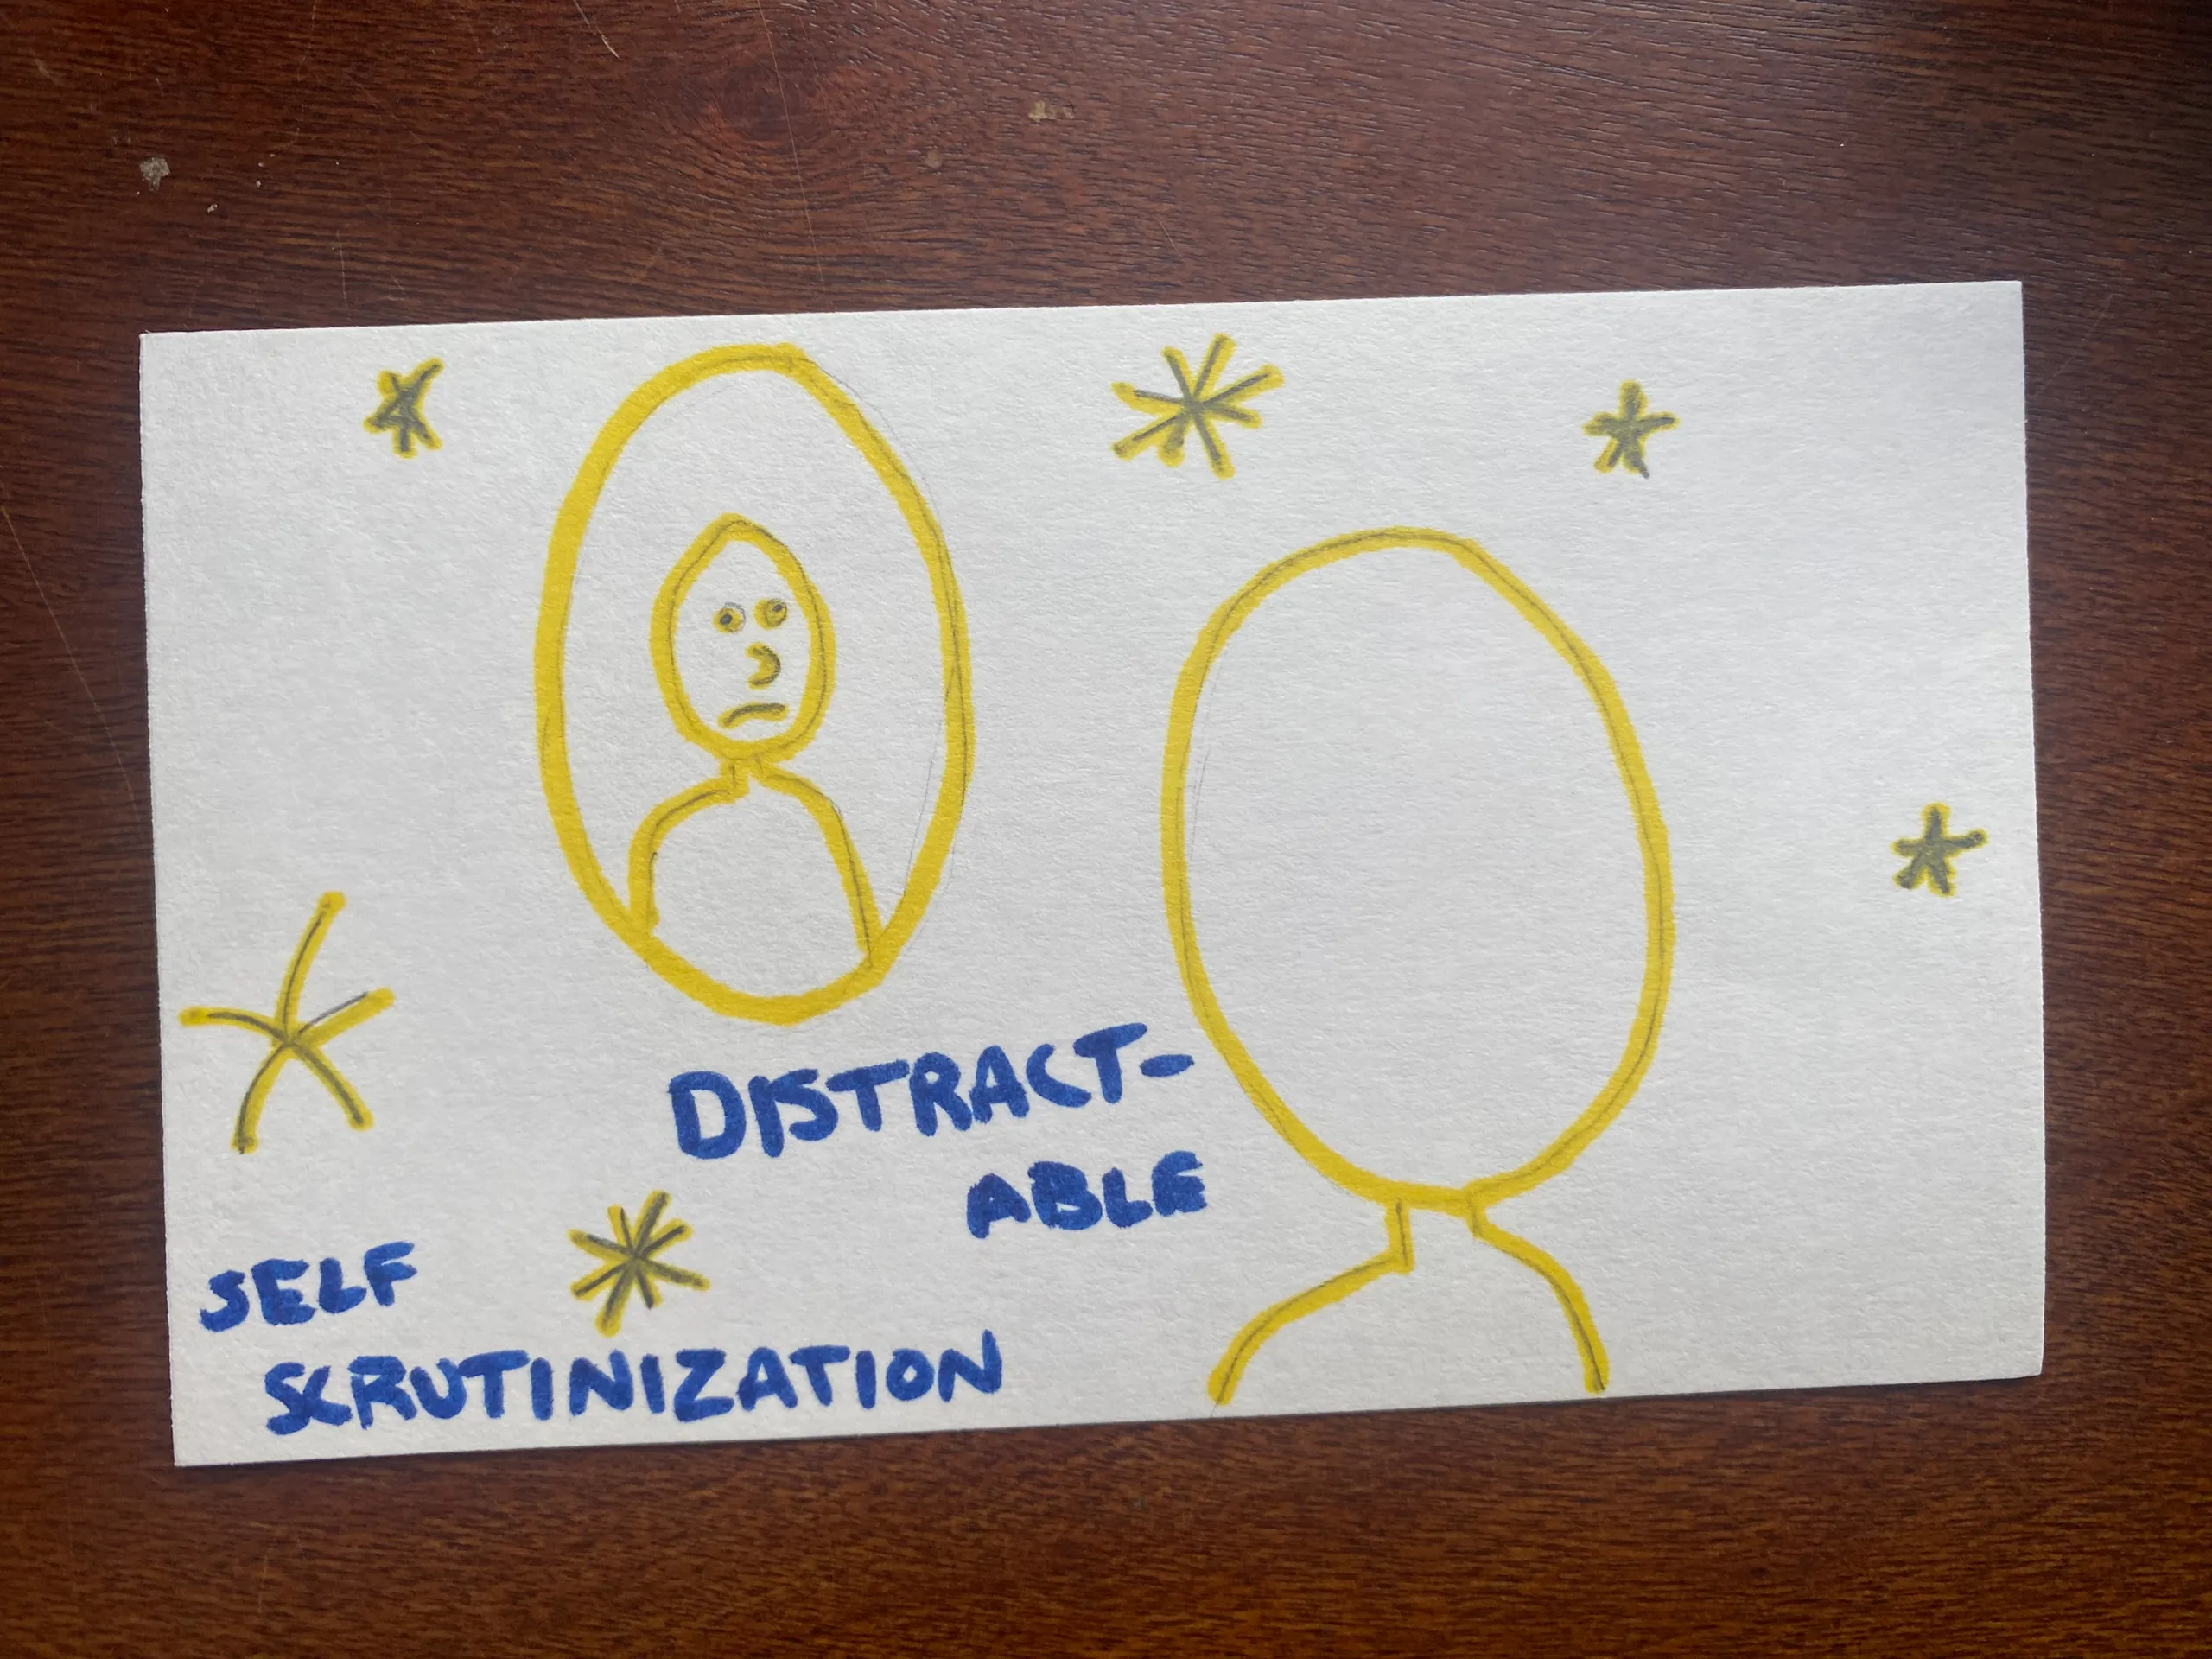 DISTRACT-
ABLE
SELF
SCRUTINIZATION